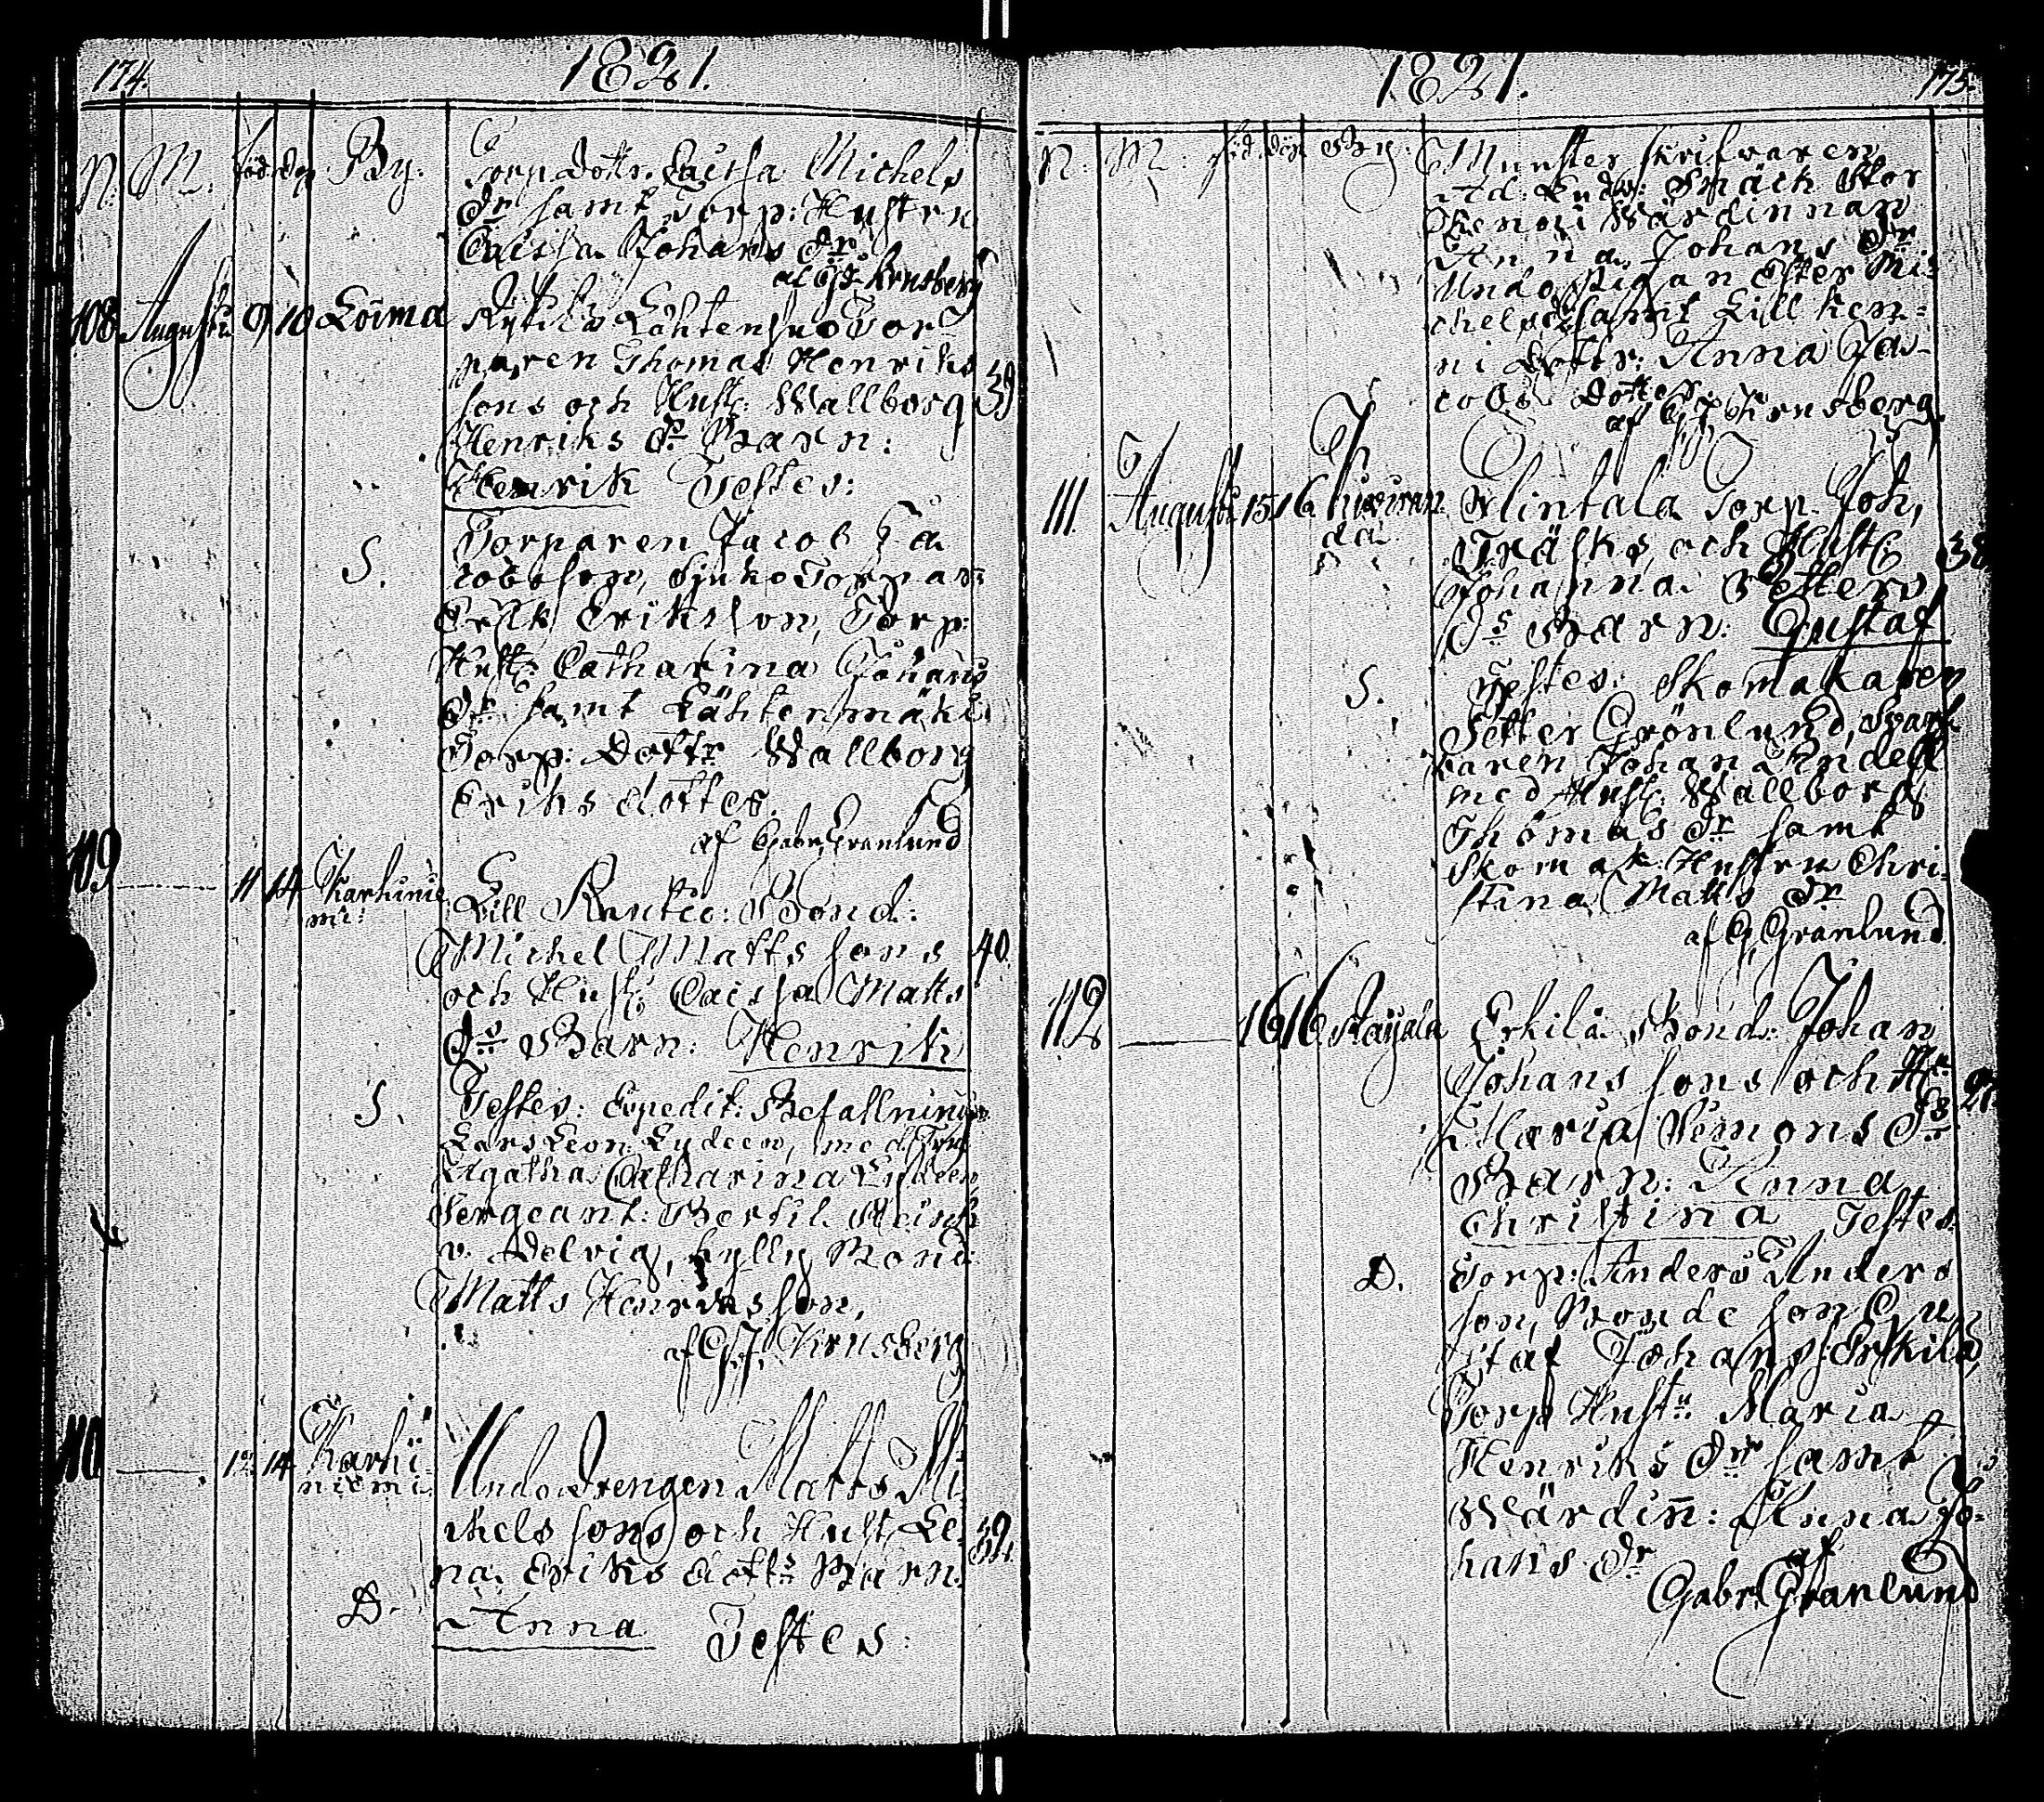 174.
1821.
N: M. född. döp By.
Torp Dottr. Caisa Michels
Dr samt Torp: Hustrun
Caisa Johans Dr
af Krusberg
108. Augusti 9 10 Loima
Torparen Thomas Henriks
sons och Hust: Wallborg 39
Henriks Ds Barn:
Henrik Testes:
S.
Torparen Jacob Ja
cobsson, Torpar:
Erik Eriksson, Torp:
Hust: Catharina Johans
Dr samt Lähtenmäki
Torp: Dottr Wallborg
Eriks dotter.
af Gabr. Granlund
109 11 14 Karhinie
mi:
Lill Bond:
Michel Matts sons 40.
och Hust: Caisa Matts
Ds Barn: Henrik
S.
Testes: Expedit: Befallnings
Lars Leon: Lydeen, med Fru
Agatha Catharina Lydeen
Sergeant: Bertil
v. Delvig, Kylly Bond:
Matts Henriksson,
af G. J. Krusberg
110 12 14 Karhi
niemi
Undo Drengen Matts Mi
chels sons och Hust: Le
na Eriks dottrs Barn: 32.
D.
Anna Testes:
1821.
175.
N: M: föd. döp. By:
Munster skrifvaren
Ad: Ludv: Späck Stor
Kenoi Wärdinnan
Anna Johans Dr
Undo Pigan Ester Mi
chels dr samt Lill Ken
ni Dottr: Anna Ja
cobs Dotter.
af G J Krusberg
111 Augusti 15 16 Huvuran
da
Clintala Torp. Joh,
Träsks och Hust: 38
Johanna Petters
Ds Barn: Gustaf
S.
Testes: Skomakaren
Petter Grönlund, Svarf
varen Johan Lindell
med Hust: Wallborg
Thomas Dr samt
Skomak: Hustru Chri
stina Matts Dr
af G. Granlund
112 16 16 Raijala
Erkilä Bond: Johan
Johans sons och Hu
Maria Simons Ds
Barn: Anna
Christina Testes
D.
Torp: Anders Anders
son, Bonde son Gu
staf Johans: Erkilä
Torp Hustu: Maria
Henriks Dr samt
Wärdiñ: Anna Jo
hans Dr
af
Gabr. Granlund